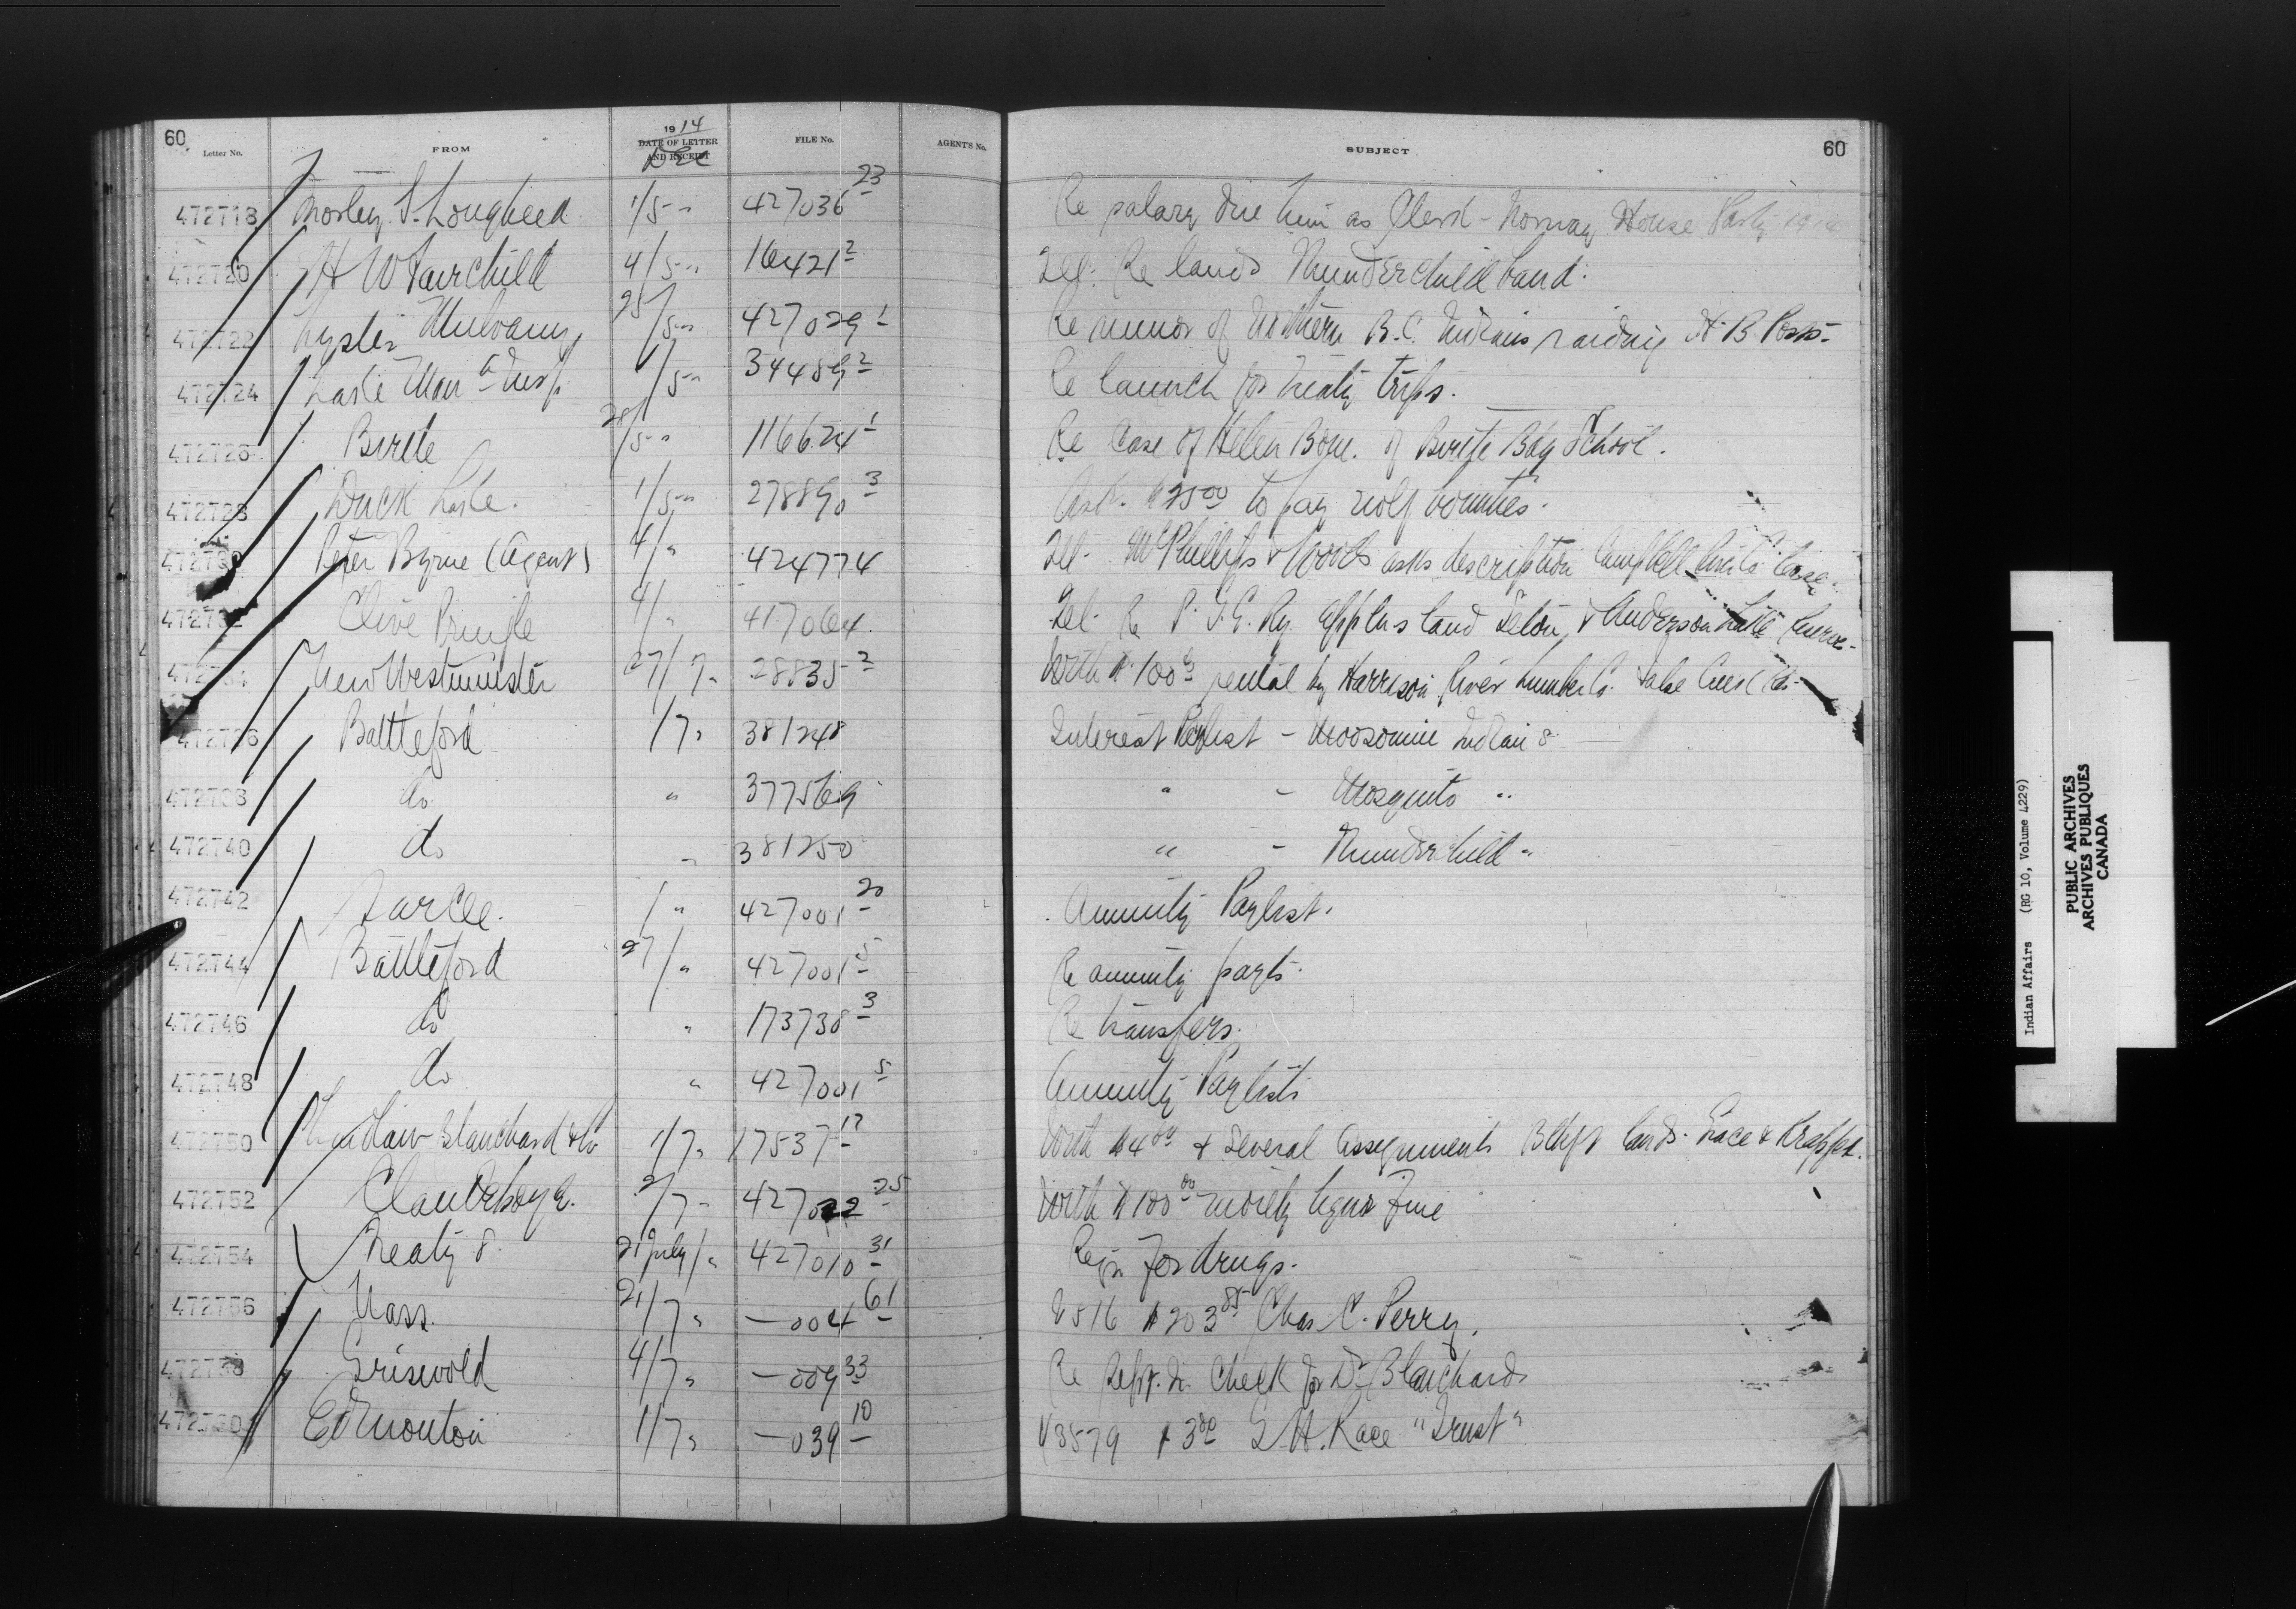 60
Letter No. FROM 1914 DATE OF LETTER AND RECEIPT Dec FILE No. AGENT'S No. SUBJECT 60
472718 Morley S. Lougheed 1/5 " 427036 23 Re salary due him as Clerk - Norway House Party 1914
472720 H W Fairchild 4/5 " 16421 2 Tel. Re lands Thunderchild band.
472722 Mulvany 25/5 " 427029 1 Re rumor of Northern B.C. Indians raiding H.B. Posts-
472724 Lake Man a Insp. 1/5 " 34489 2 Re launch for Treaty trips.
472726 Birtle 28/5 " 116624 1 Re Case of Helen Bone. of Birtle Bdg School.
472728 Duck Lake. 1/5 " 278890 3 Ask. $25 00 to pay wolf bounties.
Peter Byrne (Agent) 4/ " 424774 Tel. McPhillips & Woods asks description Campbell
472732 Clive Pringle 4/ " 417064 Tel. Re P. G. E. Ry. appln land Seton & Anderson Lake Reserve-
New Westminster 27/7 " 28835 2 With $100 rental by Harrison River Lumber Co.
472736 Battleford 1/7 " 381248 Interest Paylist - Moosomin Indians
472738 do " 377569 " - Mosquito "
472740 do " 381250 " - Thunderchild "
472742 Sarcee. / " 427001 20 Annuity Paylist.
472744 Battleford 27/ " 427001 5 Re annuity payts.
472746 do " 173738 3 Re transfers.
472748 do " 427001 5 Annuity Paylists
472750 Blanchard & Co 1/7 " 17537 17 With $4 & Several Assignments Bldgs lands.
472752 Clandeboye. 2/7 " 427022 25 With $100 00 moiety liquor Fine
472754 Treaty 8. 21 July/ " 427010 31 Reqn for drugs.
472756 Nass. 21/7 " —004 61 V516 $203 85 Chas C. Perry.
472758 Griswold 4/7 " —009 33 Re Check for Dr Blanchard
Edmonton 1/7 " —039 10 V3579 $3 G H. Race "Trust"
Indian Affairs (RG 10, Volume 4229)
PUBLIC ARCHIVES
ARCHIVES PUBLIQUES
CANADA